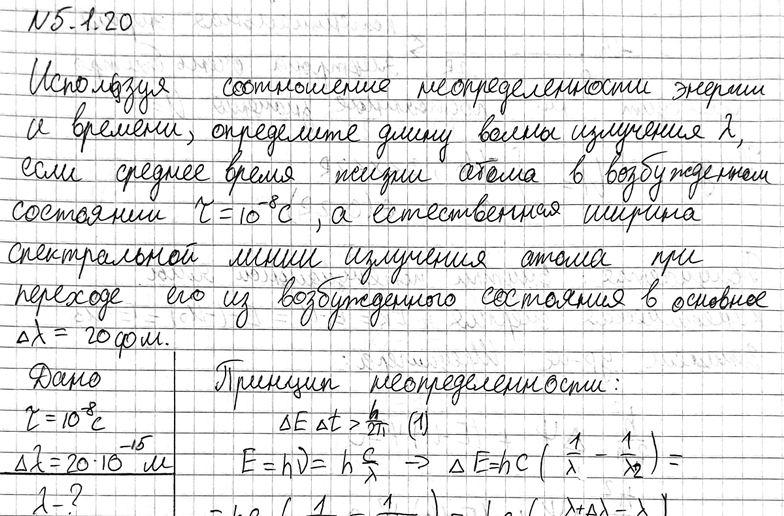 N5.1.20
Используя соотношение неопределенности энергии
и времени, определите длину волны излучения λ,
если среднее время жизни атома в возбужденном
состоянии τ = 10⁻⁸ с, а естественная ширина
спектральной линии излучения атома при
переходе его из возбужденного состояния в основное
Δλ = 20 фм.
Дано
τ = 10⁻⁸ с
Δλ = 20·10⁻¹⁵ м
λ - ?
Принцип неопределенности:
ΔE Δt > h/2π (1)
E = hν = h c/λ → ΔE = hc (1/λ - 1/λ2) =